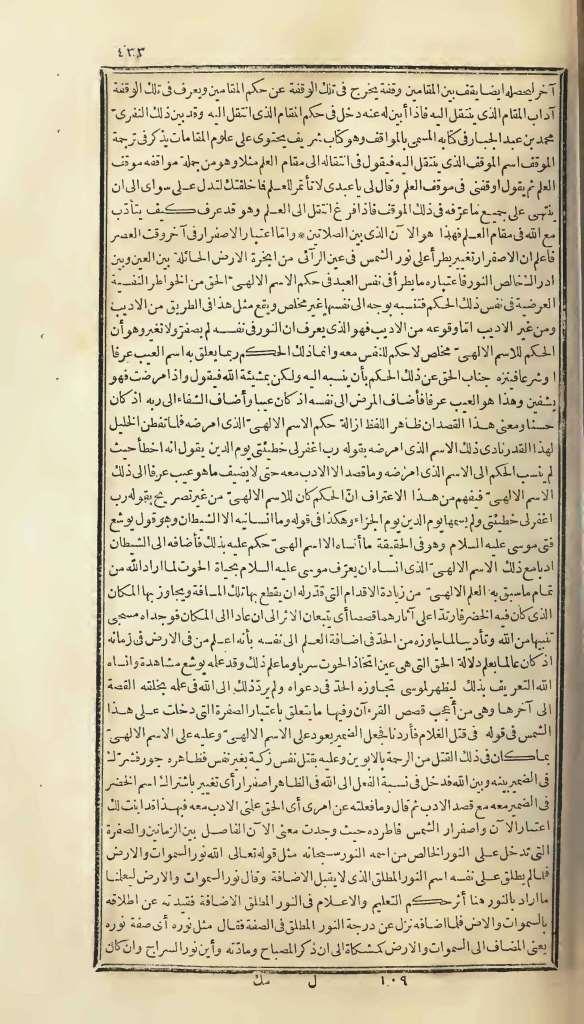 ٤٣٣
آخر ليحصله أيضا يقف بين المقامين وقفة يخرج فى تلك الوقفة عن حكم المقامين ويعرف فى تلك الوقفة
آداب المقام الذى ينتقل اليه فاذا أبين له عنه دخل فى حكم المقام الذى انتقل اليه وقد بين ذلك النفرى
محمد بن عبد الجبار فى كتابه المسمى بالمواقف وهو كتاب شريف يحتوى على علوم المقامات يذكر فى ترجمة
الموقف اسم الموقف الذى ينتقل اليه فيقول فى انتقاله الى مقام العلم مثلا وهو من جملة مواقفه موقف
العلم ثم يقول أوقفنى فى موقف العلم وقال لى ياعبدى لا تأتمر للعلم فما خلقتك لتدل على سواى الى ان
ينتهى على جميع ما عرفه فى ذلك الموقف فاذا فرغ انتقل الى العلم وهو قد عرف كيف يتأدب
مع الله فى مقام العلم فهذا هو الآن الذى بين الصلاتين * وأما اعتبار الاصفرار فى آخر وقت العصر
فاعلم ان الاصفرار تغيير يطرأ على نور الشمس فى عين الرائى من ابخرة الارض الحائلة بين العين وبين
ادراك خالص النور فاعتباره ما يطرأ فى نفس العبد فى حكم الاسم الالهى الحق من الخواطر النفسية
العرضية فى نفس ذلك الحكم فتنسبه بوجه الى نفسها غير مخلص ويقع مثل هذا فى الطريق من الاديب
ومن غير الاديب اما وقوعه من الاديب فهو الذى يعرف ان النور فى نفسه لم يصفر ولا تغير وهو أن
الحكم للاسم الالهى مخلص لا حكم للنفس معه وانما ذلك الحكم ربما يعلق به اسم العيب عرفا
أو شرعا فينزه جناب الحق عن ذلك الحكم بأن ينسبه اليه ولكن بمشيئة الله فيقول واذا مرضت فهو
يشفين وهذا هو العيب عرفا فأضاف المرض الى نفسه اذ كان عيبا وأضاف الشفاء الى ربه اذ كان
حسنا ومعنى هذا القصد ان ظاهر اللفظ ازالة حكم الاسم الالهى الذى امرضه فلما تفطن الخليل
لهذا القدر نادى ذلك الاسم الذى امرضه بقوله رب اغفر لى خطيئتى يوم الدين يقول انه اخطأ حيث
لم ينسب الحكم الى الاسم الذى امرضه وما قصد الا الادب معه حتى لا يضيف ما هو عيب عرفا الى ذلك
الاسم الالهى فيفهم من هذا الاعتراف ان الحكم كان للاسم الالهى من غير تصريح بقوله رب
اغفر لى خطيئتى ولم يسمها يوم الدين يوم الجزاء وهكذا فى قوله وما أنسانيه الا الشيطان وهو قول يوشع
فتى موسى عليه السلام وهو فى الحقيقة ما أنساه الا اسم الهى حكم عليه بذلك فأضافه الى الشيطان
ادبا مع ذلك الاسم الالهى الذى انساه ان يعرّف موسى عليه السلام بحياة الحوت لما اراد الله من
تمام ما سبق به العلم الالهى من زيادة الاقدام التى قدر له ان يقطع بها تلك المسافة ويجاوز بها المكان
الذى كان فيه الخضر فارتدا على آثارهما قصصا أى يتبعان الاثر الى ان عادا الى المكان فوجداه مسجى
تنبيها من الله وتأديبا لما جاوزه من الحد فى اضافة العلم الى نفسه بأنه اعلم من فى الارض فى زمانه
اذ كان عالما يعلم دلالة الحق التى هى عين اتخاذ الحوت سربا وما علم ذلك وقد علمه يوشع مشاهدة وأنساه
الله التعريف بذلك ليظهر لموسى تجاوزه الحد فى دعواه ولم يرد ذلك الى الله فى علمه بخلقته القصة
الى آخرها وهى من أعجب قصص القرءآن وفيها ما يتعلق باعتبار الصفرة التى دخلت على هذا
الشمس فى قوله فى قتل الغلام فأردنا فجعل الضمير يعود على الاسم الالهى وعليه على الاسم الالهى
بما كان فى ذلك القتل من الرحمة بالابوين وعليه بقتل نفس زكية بغير نفس فظاهره جور فشرّك
فى الضمير بينه وبين الله فدخل فى نسبة الفعل الى الله فى الظاهر اصفرار أى تغيير باشتراك اسم الخضر
فى الضمير معه مع قصد الادب ثم قال وما فعلته عن امرى أى الحق علمنى الادب معه فهذا قد ابنت لك
اعتبار الآن واصفرار الشمس فاطرده حيث وجدت معنى الآن الفاصل بين الزمانين والصفرة
التى تدخل على النور الخالص من اسمه النور سبحانه مثل قوله تعالى الله نور السموات والارض
فلما لم يطلق على نفسه اسم النور المطلق الذى لا يقبل الاضافة وقال نور السموات والارض ليعلمنا
ما اراد بالنور هنا أثر حكم التعليم والاعلام فى النور المطلق الاضافة فقيدته عن اطلاقه
بالسموات والارض فلما اضافه نزل عن درجة النور المطلق فى الصفة فقال مثل نوره أى صفة نوره
يعنى المضاف الى السموات والارض كمشكاة الى ان ذكر المصباح ومادته وأين نور السراج وان كان
١٠٩ ل مك